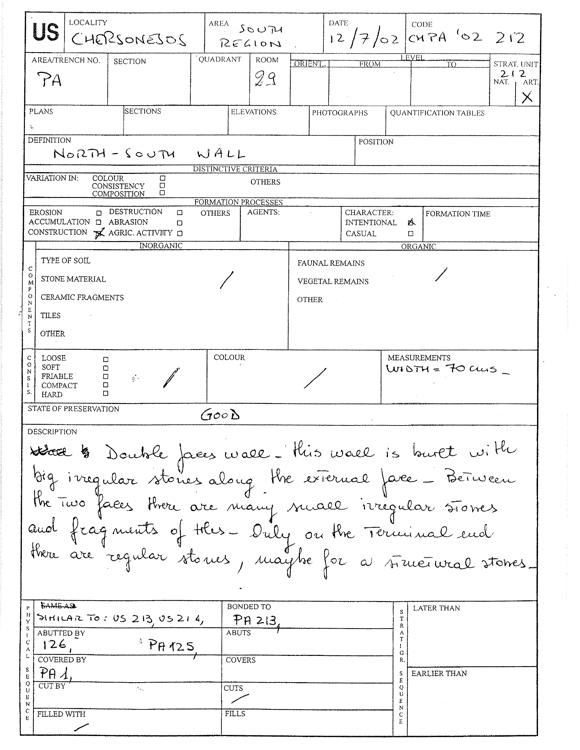 US
LOCALITY
CHERSONESOS
AREA SOUTH
REGION
DATE
12/7/02
CODE
CHPA '02 212
AREA/TRENCH NO.
PA
SECTION
QUADRANT
ROOM
29
LEVEL
ORIENT. FROM TO
STRAT. UNIT
212
NAT. ART.
X
PLANS
SECTIONS
ELEVATIONS
PHOTOGRAPHS
QUANTIFICATION TABLES
DEFINITION
NORTH-SOUTH WALL
POSITION
DISTINCTIVE CRITERIA
VARIATION IN: COLOUR □
CONSISTENCY □
COMPOSITION □
OTHERS
FORMATION PROCESSES
EROSION □ DESTRUCTION □ OTHERS
ACCUMULATION □ ABRASION □
CONSTRUCTION ☒ AGRIC. ACTIVITY □
AGENTS:
CHARACTER:
INTENTIONAL ☒
CASUAL □
FORMATION TIME
COMPONENTS
INORGANIC
TYPE OF SOIL
STONE MATERIAL /
CERAMIC FRAGMENTS
TILES
OTHER
ORGANIC
FAUNAL REMAINS
VEGETAL REMAINS /
OTHER
CONSIS.
LOOSE □
SOFT □
FRIABLE □ /
COMPACT □
HARD □
COLOUR
/
MEASUREMENTS
WIDTH = 70 cms _
STATE OF PRESERVATION
GOOD
DESCRIPTION
Double faces wall - this wall is buret with
big irregular stones along the external face - Between
the two faces there are many small irregular stones
and fragments of tiles - Only on the Terminal end
there are regular stones, maybe for a structural stones_
PHYSICAL SEQUENCE
SAME AS
SIMILAR TO: US 213, US 214,
BONDED TO
PA 213,
ABUTTED BY
126, PA 125,
ABUTS
COVERED BY
PA 1,
COVERS
CUT BY
CUTS
/
FILLED WITH
/
FILLS
STRATIGR. SEQUENCE
LATER THAN
EARLIER THAN